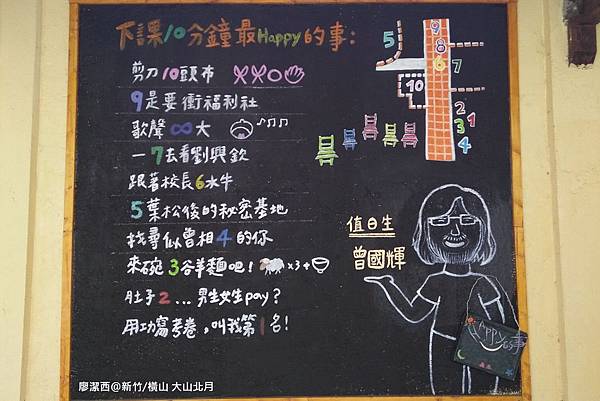 下課10分鐘最Happy的事:
剪刀10頭布
9是要衝福利社
歌聲∞大
一7去看劉興欽
跟著校長6水牛
5葉松後的秘密基地
找尋似曾相4的你
來碗3谷羊麵吧! x3+
肚子2...男生女生pay?
用功寫考卷,叫我第1名!
9
8
5
6
7
10
2
3
1
4
值日生
曾國輝
Happy
的事
廖潔西@新竹/橫山 大山北月